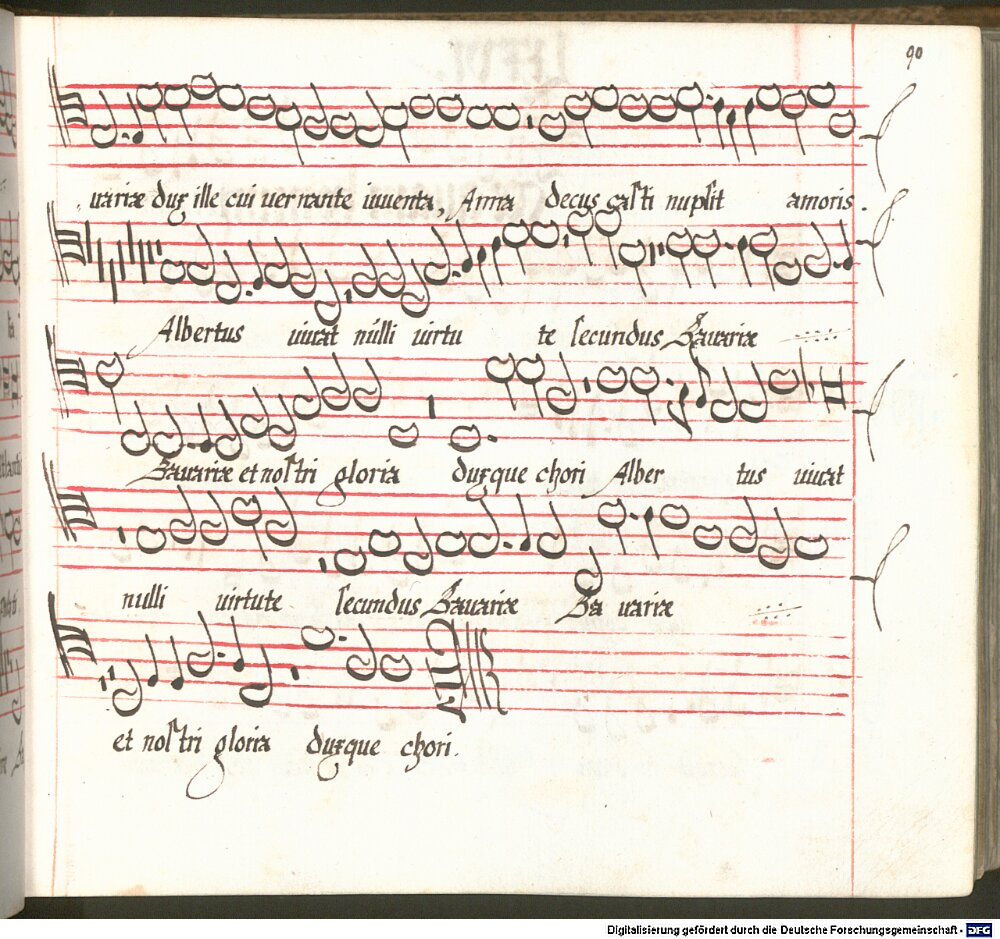 90
variæ dux ille cui vernante iuventa, Anna decus casti nupsit amoris.
Albertus vivat nulli virtu te secundus Bavariæ
Bavariæ et nostri gloria duxque chori Alber tus vivat
nulli virtute secundus Bavariæ Ba variæ
et nostri gloria duxque chori.
Digitalisierung gefördert durch die Deutsche Forschungsgemeinschaft - DFG